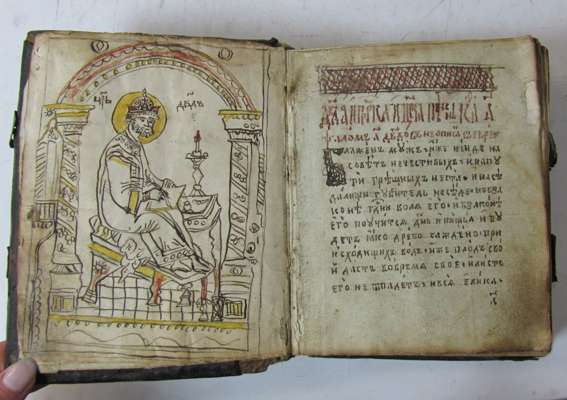 цр҃ь двдъ
ѱаломъ а҃ двдовъ неописанъ въ еврѣ
Блажен мужъ иже не иде на
совѣтъ нечестивыхъ и на пу
ти грѣшныхъ не ста и на сѣ
далищи губитель не сѣде но въ за
конѣ гдни волѧ его и въ законѣ
его поучитсѧ днь и нощь и бу
детъ ꙗко древо саждено при
исходищихъ водъ иже плодъ сво
й дастъ во времѧ свое и листъ
его не ѿпадетъ и всѧ елика